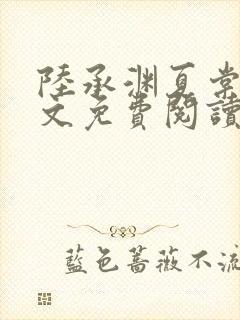 陸承渊夏棠
文免費閱讀
藍色薔薇不流